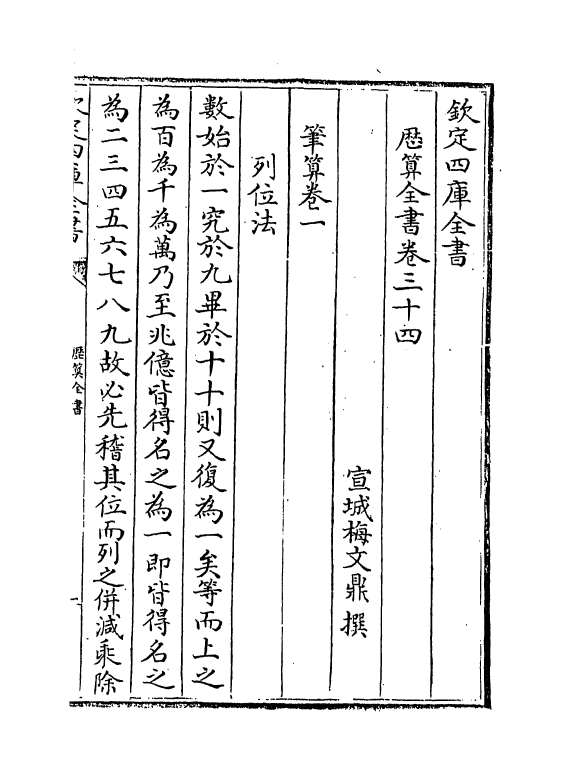 欽定四庫全書
歴算全書卷三十四
宣城梅文鼎撰
筆算卷一
列位法
數始於一究於九畢於十十則又復為一矣等而上之
為百為千為萬乃至兆億皆得名之為一即皆得名之
為二三四五六七八九故必先稽其位而列之併減乘除
欽定四庫全書
歴算全書
一